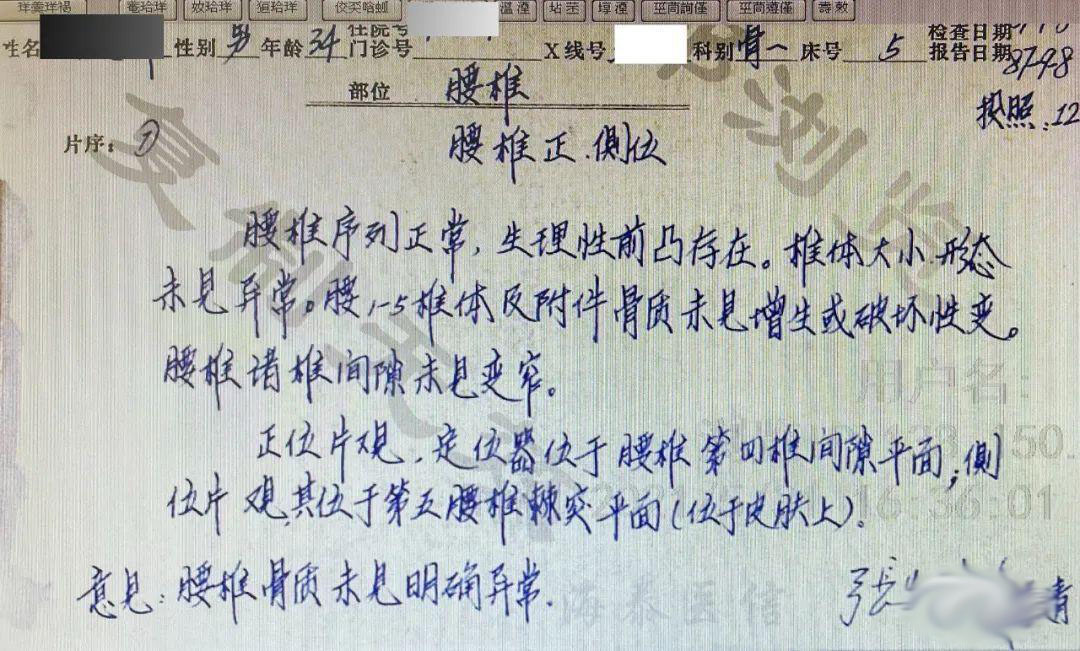 姓名 性别 男 年龄 34 住院号 门诊号 X线号 科别 骨一 床号 5 检查日期 报告日期 87-9-8
部位 腰椎
投照:12
片序:① 腰椎正.侧位
腰椎序列正常,生理性前凸存在。椎体大小形态
未见异常。腰1-5椎体及附件骨质未见增生或破坏性变。
腰椎诸椎间隙未见变窄。
正位片观,定位器位于腰椎第四椎间隙平面;侧
位片观,其位于第五腰椎棘突平面(位于皮肤上)。
意见:腰椎骨质未见明确异常.
张 青
用户名:
150.
16:36:01
海泰医信
复制无效
浏览